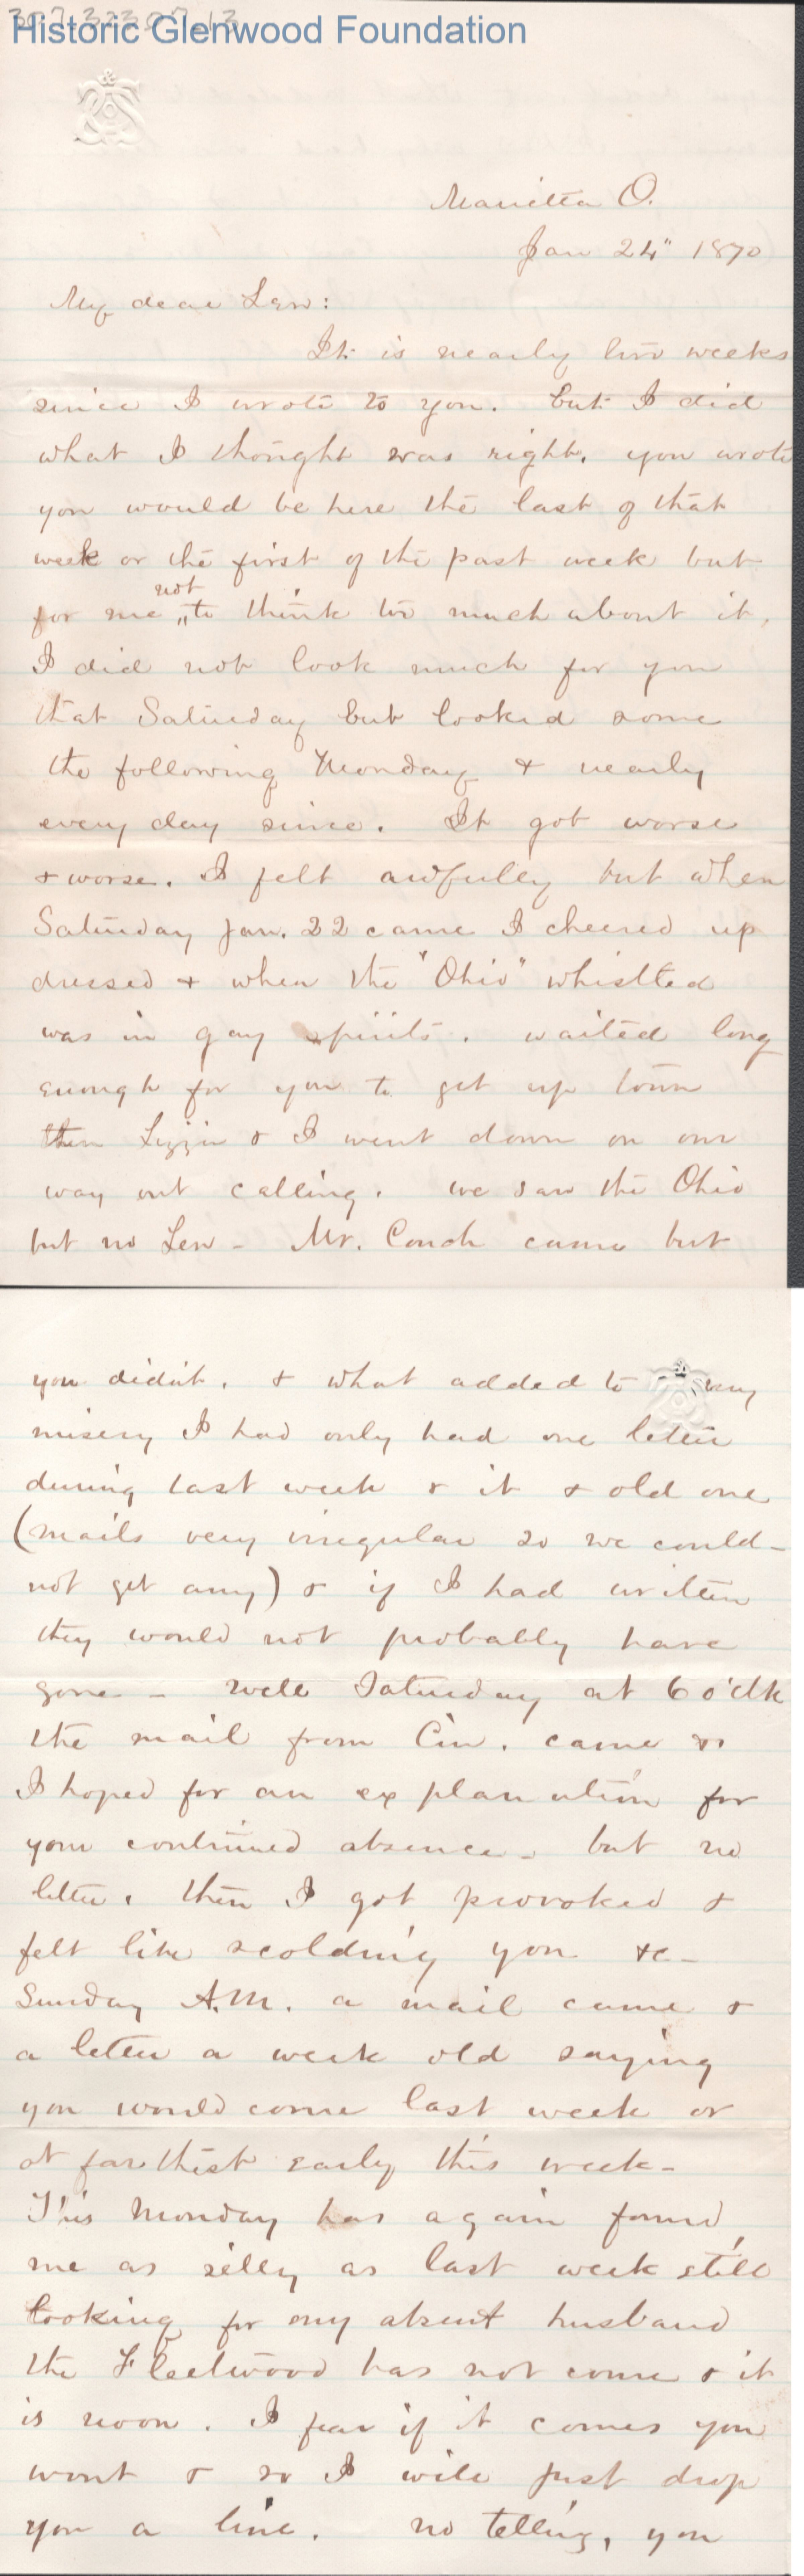 307.3230713
Historic Glenwood Foundation
Marietta O.
Jan 24" 1870
My dear Lew:
It is nearly two weeks
since I wrote to you. but I did
what I thought was right. you wrote
you would be here the last of that
week or the first of the past week but
not
for me to think too much about it,
I did not look much for you
that Saturday but looked some
the following Monday & nearly
every day since. It got worse
& worse. I felt awfully but when
Saturday Jan. 22 came I cheered up
dressed & when the "Ohio" whistled
was in gay spirits. waited long
enough for you to get up town
then Lizzie & I went down on our
way out calling. we saw the Ohio
but no Lew - Mr. Couch came but
you didn't. & what added to my
misery I had only had one letter
during last week & it & old one
(mails very irregular so we could-
not get any) & if I had written
they would not probably have
gone - well Saturday at 6 o'clk
the mail from Cin. came &
I hoped for an explanation for
your continued absence - but no
letter. then I got provoked &
felt like scolding you &c -
Sunday A.M. a mail came &
a letter a week old saying
you would come last week or
at farthest early this week -
This Monday has again found
me as silly as last week still
looking for my absent husband
the Fleetwood has not come & it
is noon. I fear if it comes you
wont & so I will just drop
you a line. no telling, you